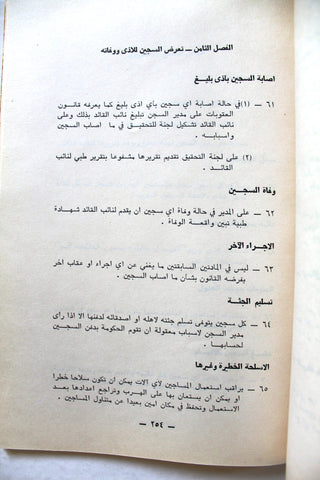 الفصل الثامن — تعرض السجين للاذى ووفاته
اصابة السجين باذى بليغ
٦١ — (١) في حالة اصابة اي سجين باي اذى بليغ كما يعرفه قانون
العقوبات على مدير السجن تبليغ نائب القائد بذلك وعلى
نائب القائد تشكيل لجنة للتحقيق في ما اصاب السجين
واسبابه .
(٢) على لجنة التحقيق تقديم تقريرها مشفوعا بتقرير طبي لنائب
القائد .
وفاة السجين
٦٢ — على المدير في حالة وفاة اي سجين ان يقدم لنائب القائد شهادة
طبية تبين واقعة الوفاة .
الاجراء الآخر
٦٣ — ليس في المادتين السابقتين ما يغني عن اي اجراء او عقاب اخر
يفرضه القانون بشأن ما اصاب السجين .
تسليم الجثة
٦٤ — كل سجين يتوفى تسلم جثته لاهله او اصدقائه لدفنها الا اذا راى
مدير السجن لاسباب معقولة ان تقوم الحكومة بدفن السجين
لحسابها .
الاسلحة الخطيرة وغيرها
٦٥ — يراقب استعمال المساجين لاي الات يمكن ان تكون سلاحا خطرا
او يمكن ان يستعان بها على الهرب وتراجع اعدادها بعد
الاستعمال وتحفظ في مكان امين بعيدا عن متناول المساجين .
— ٢٥٤ —